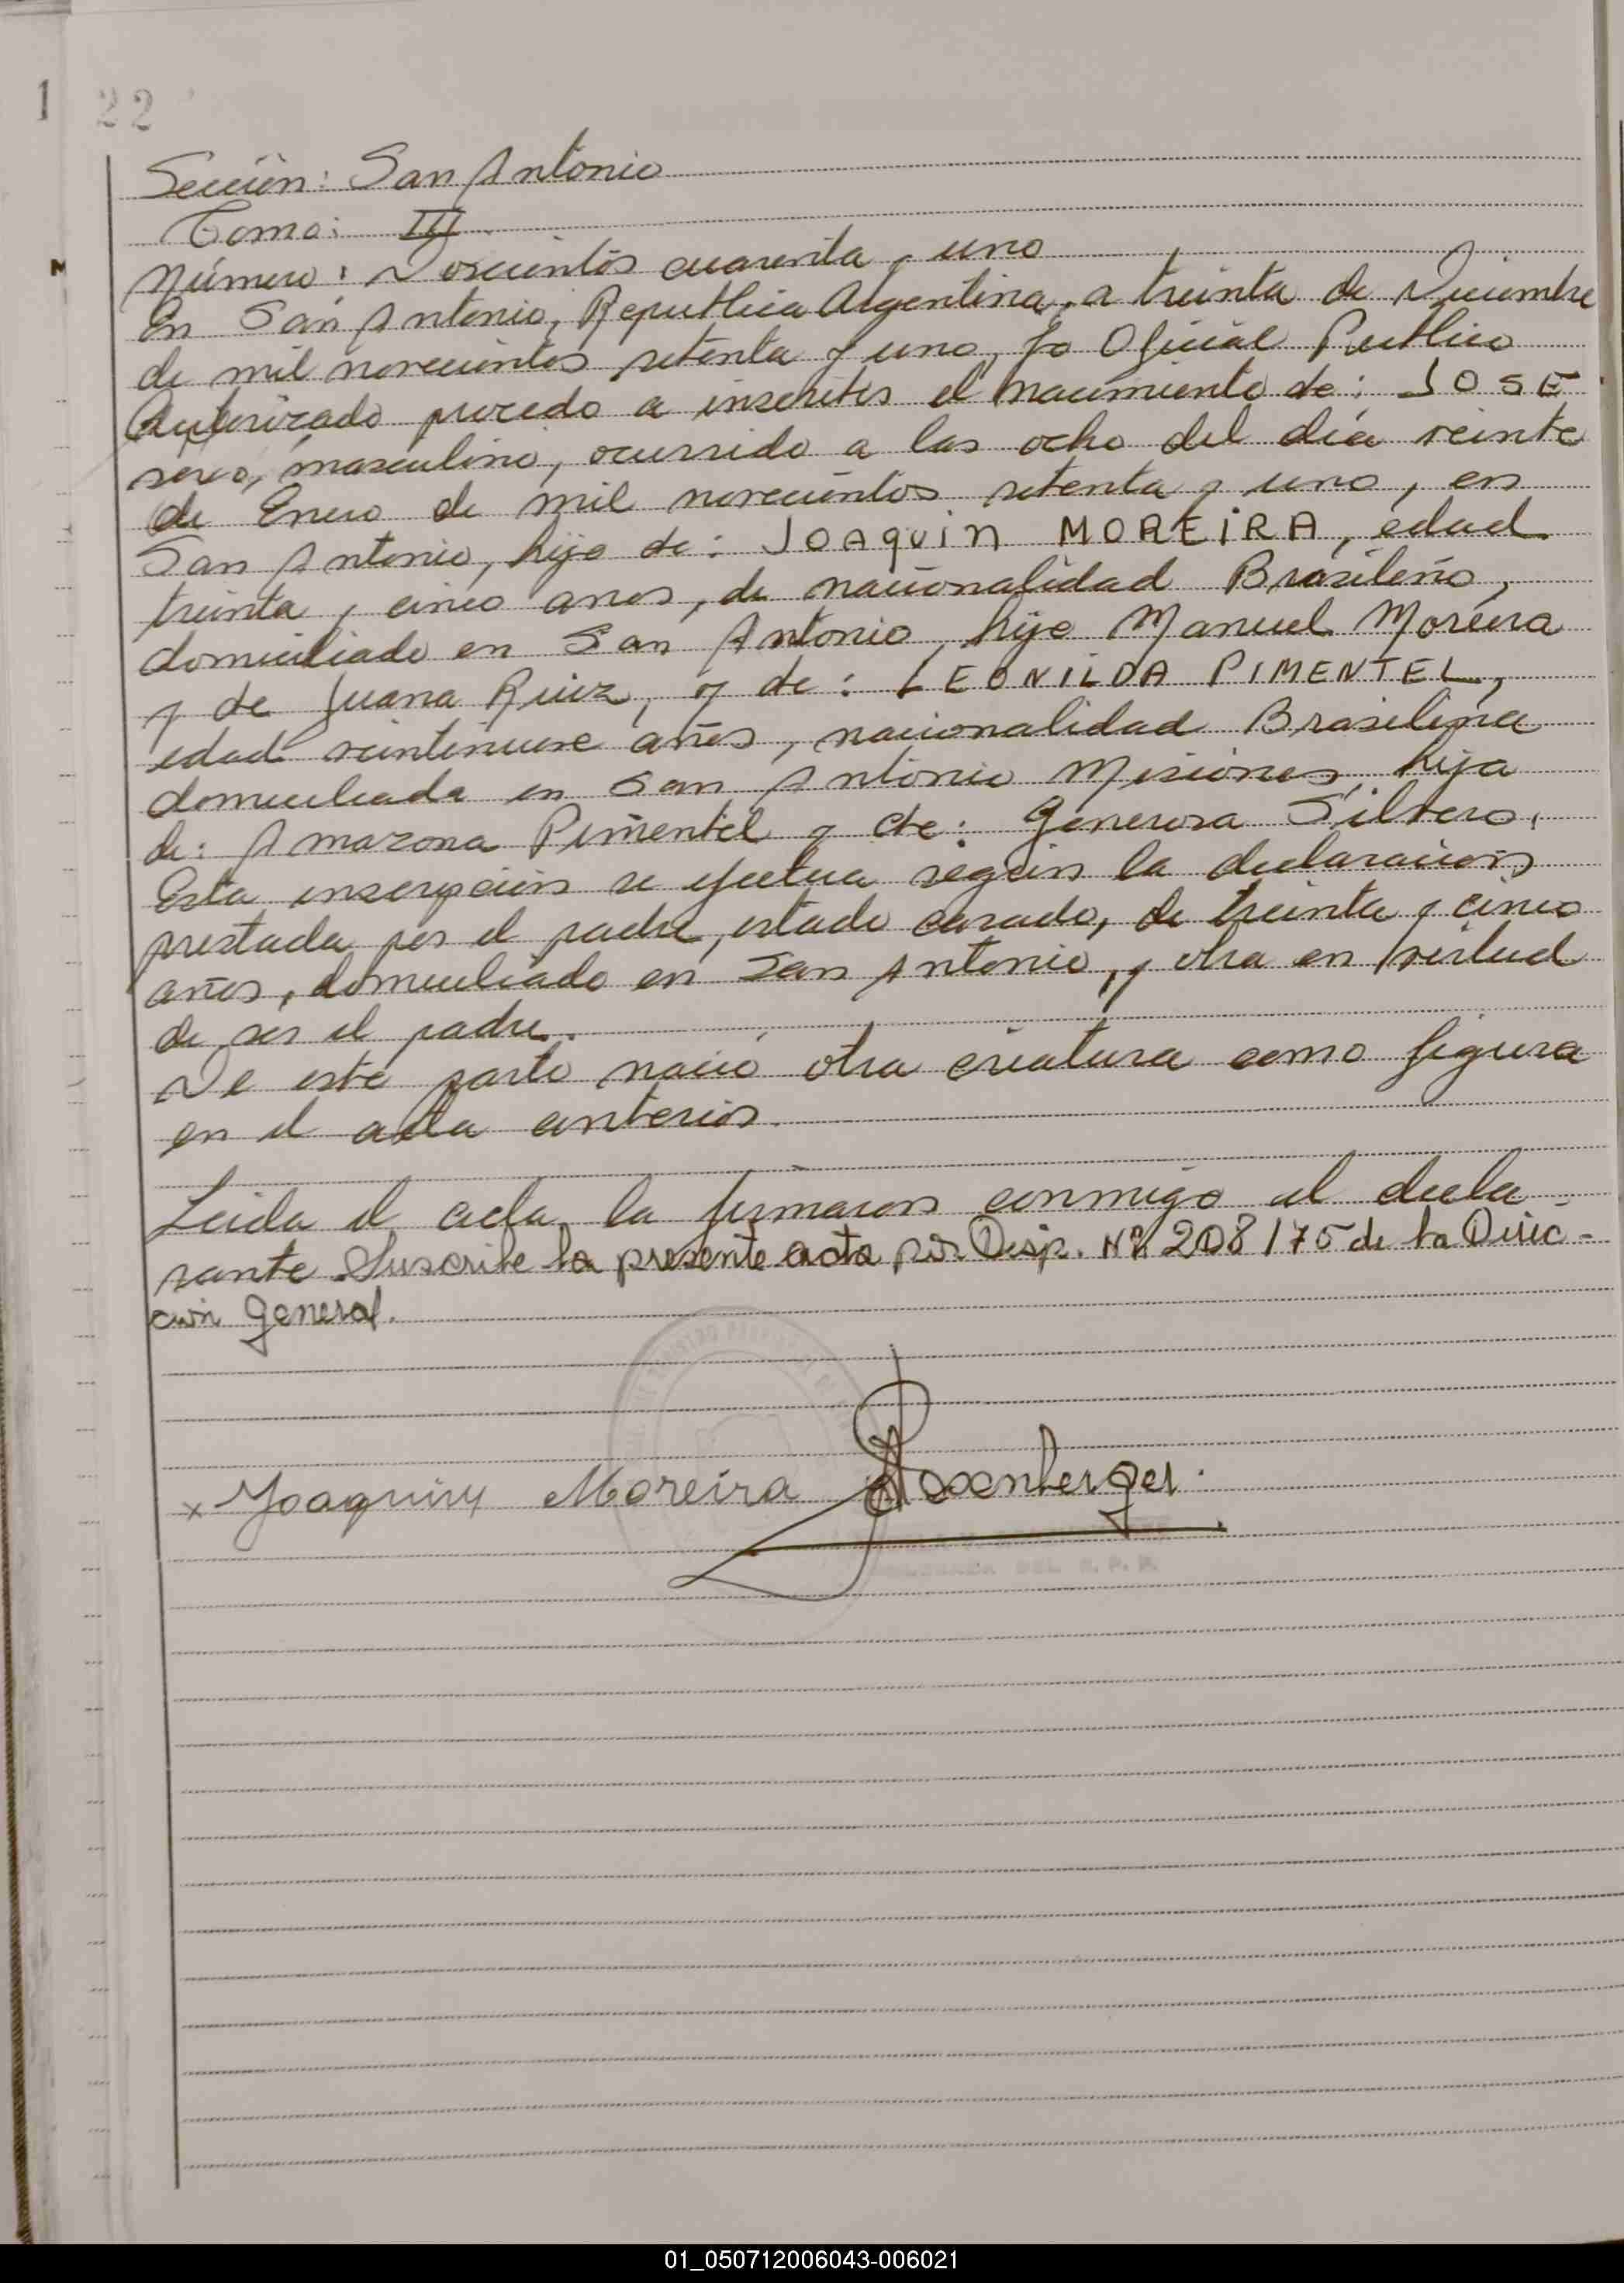 1 22
Sección: San Antonio
Tomo: III.
M
Número: Doscientos cuarenta y uno
En San Antonio, Republica Argentina, a treinta de Diciembre
de mil novecientos setenta y uno, Yo Oficial Publico
Autorizado procedo a inscribir el nacimiento de: JOSE
sexo, masculino, ocurrido a las ocho del día veinte
de Enero de mil novecientos setenta y uno, en
San Antonio, hijo de: JOAquiN MOREiRA, edad
treinta y cinco anos, de nacionalidad Brasileño,
domiciliado en San Antonio, hijo Manuel Moreira
y de Juana Ruiz, y de: LEONILDA PIMENTEL,
edad veintinueve años, nacionalidad Brasileña
domiciliada en San Antonio Misiones, hija
de: Amazona Pimentel y de: Generosa Silvero.
Esta inscripción se efectua según la declaración
prestada por el padre, estado casado, de treinta y cinco
años, domiciliado en San Antonio, y obra en virtud
de ser el padre.
De este parto nació otra criatura como figura
en el acta anterior.
Leida el acta, la firmaron conmigo el decla-
rante Suscribe la presente acta por Disp. Nº 208/75 de la Direc-
ción General.
x Joaquim Moreira
DEL R. P. P.
01_050712006043-006021